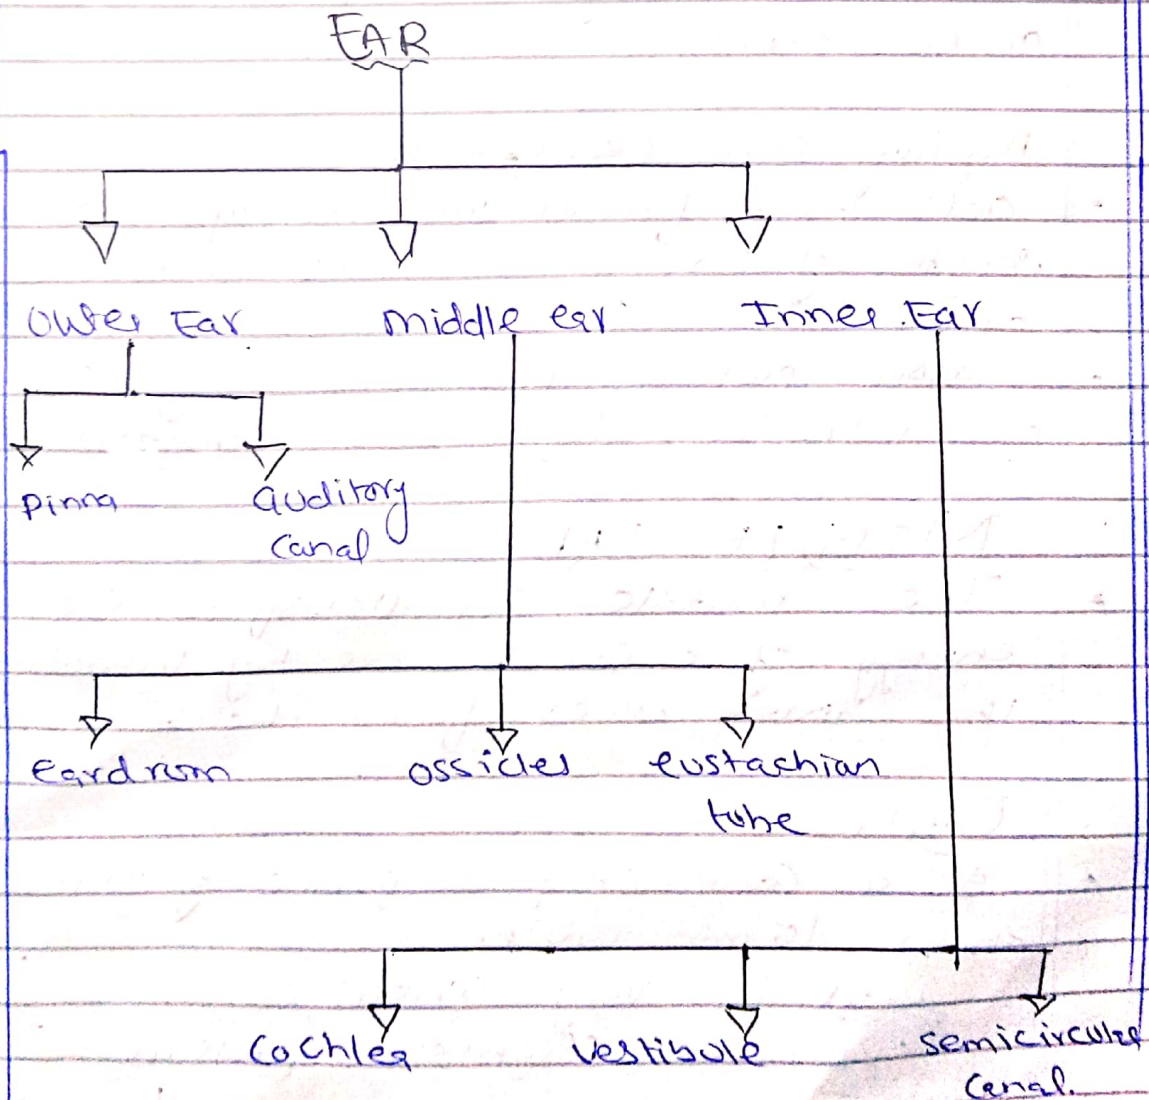 EAR
Outer Ear middle ear Inner Ear
Pinna auditory
canal
eardrum ossicles eustachian
tube
Cochlea vestibule semicircular
canal.